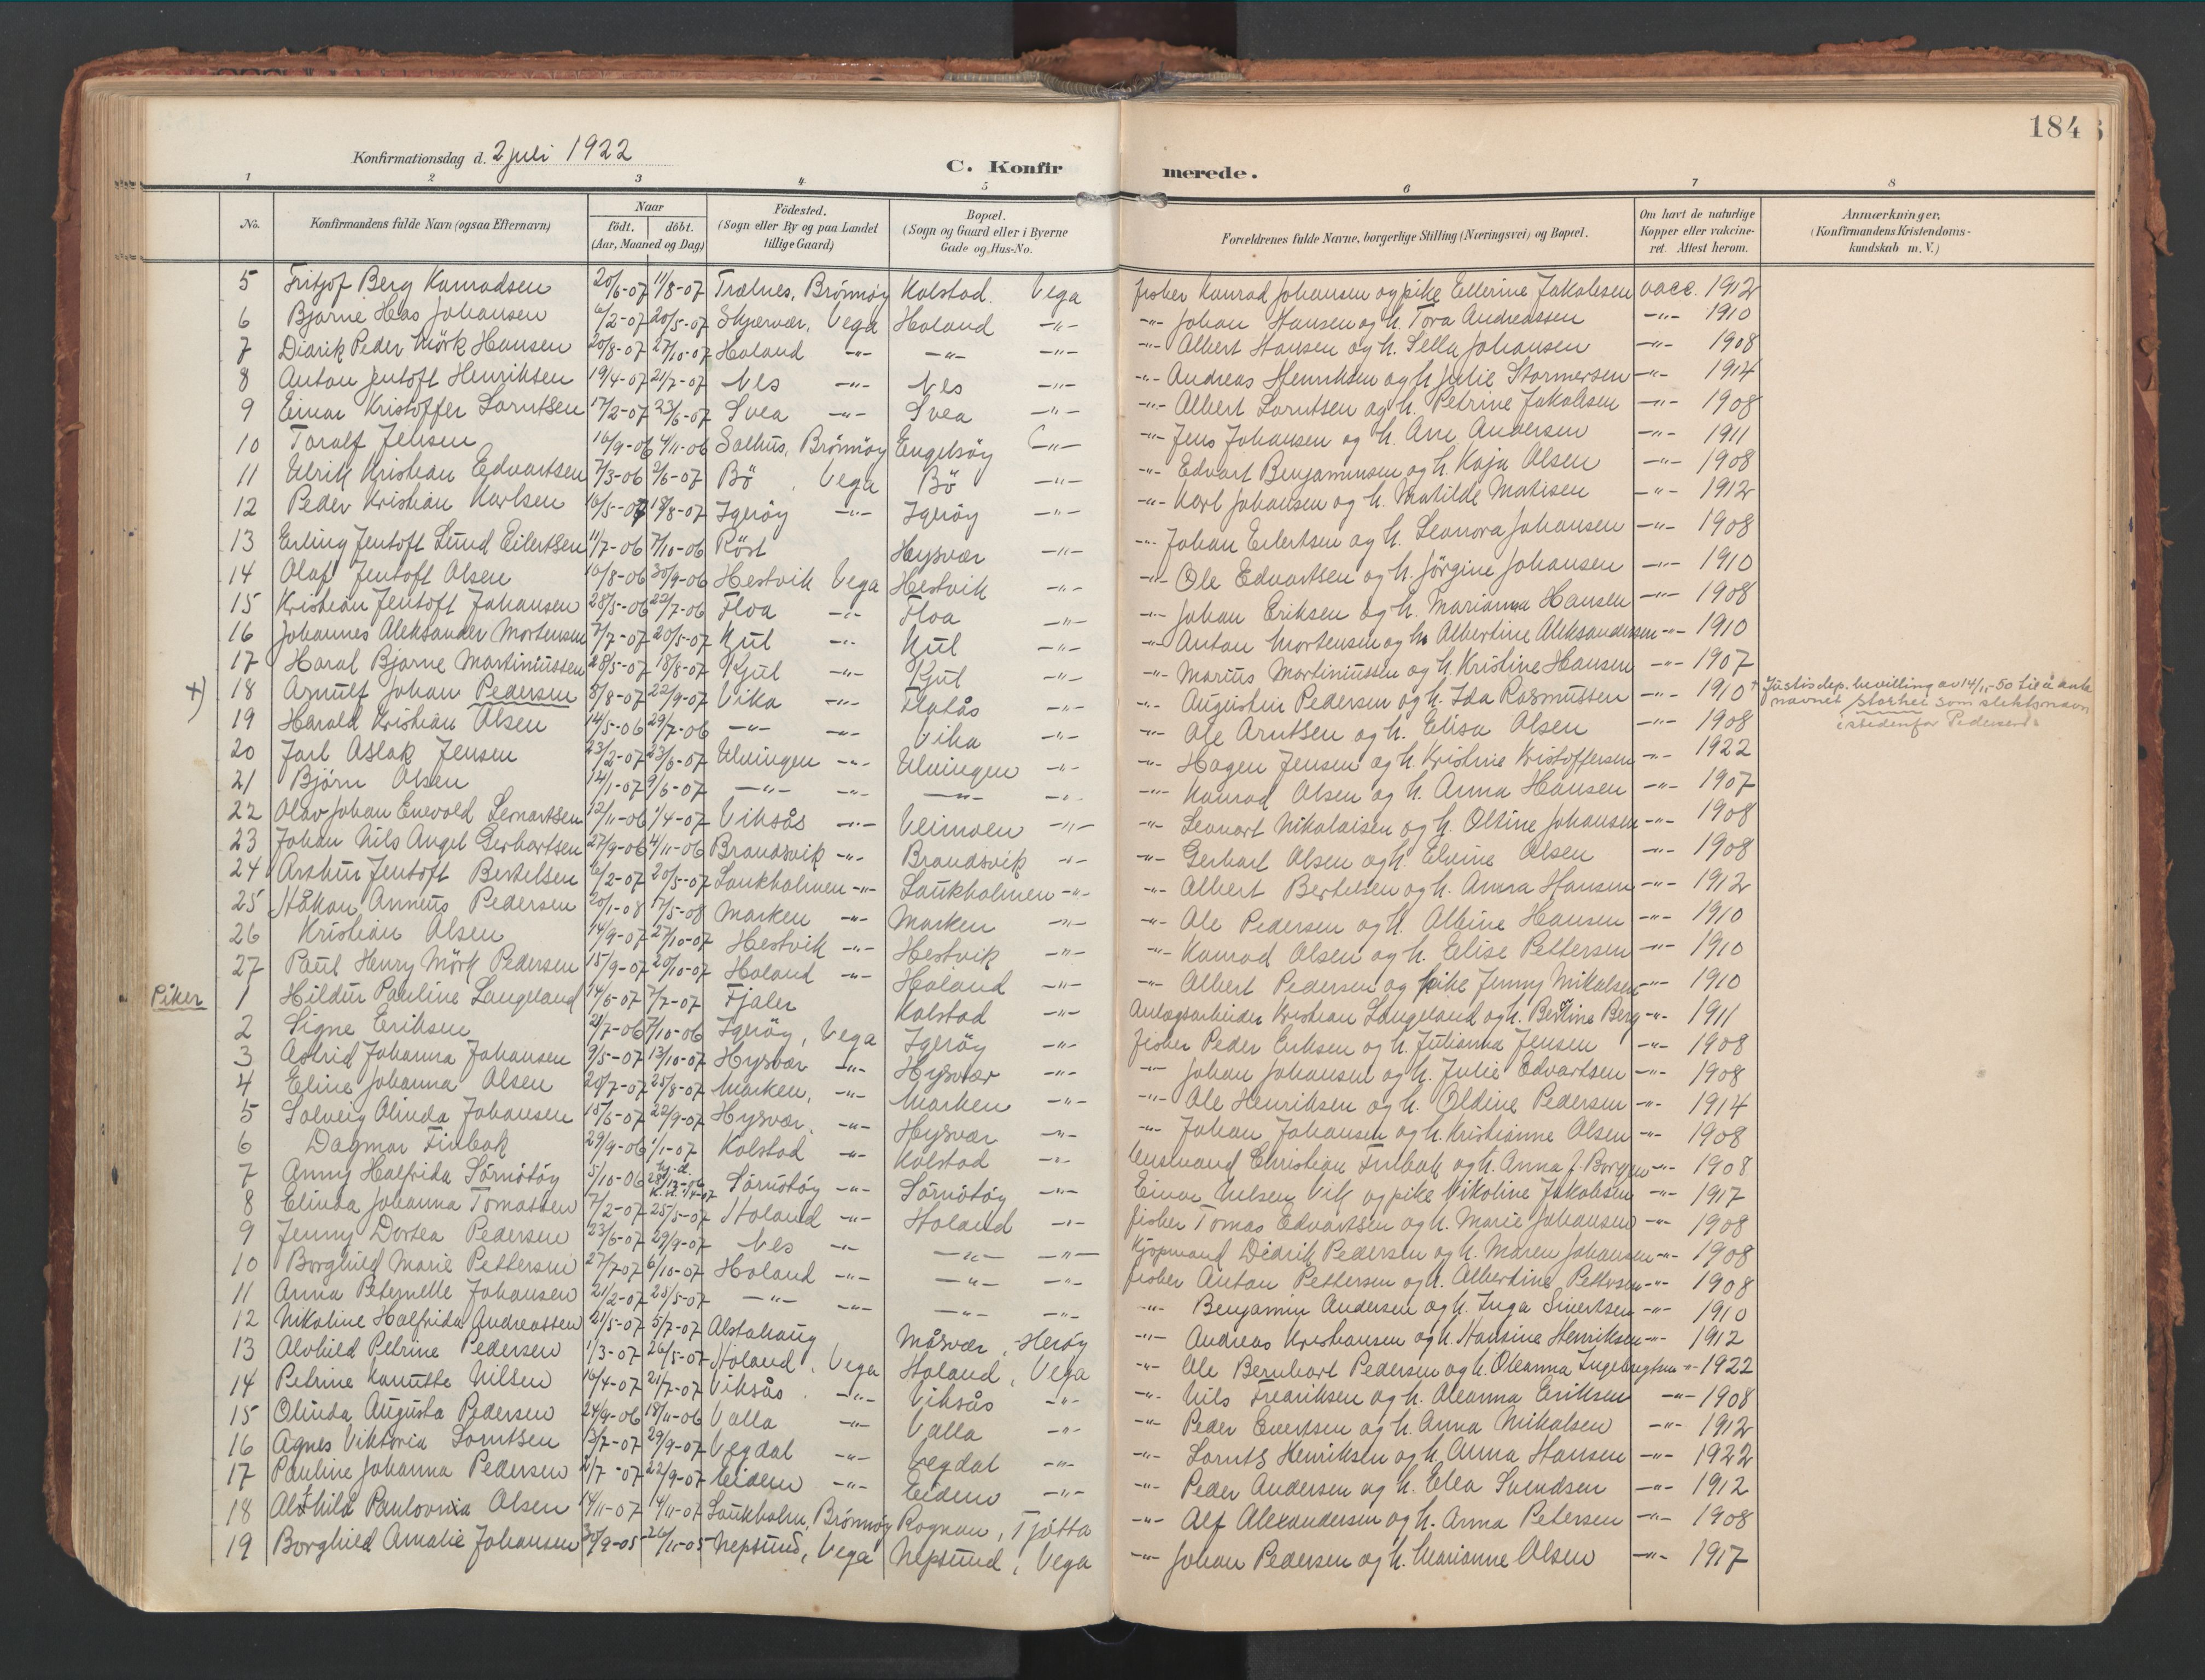 184
Konfirmationsdag d. 2 juli 1922
C. Konfirmerede.
1 2 3 4 5 6 7 8
No. Konfirmandens fulde Navn (ogsaa Efternavn) Naar født. døbt. (Aar, Maaned og Dag) Födested. (Sogn eller By og paa Landet tillige Gaard) Bopæl. (Sogn og Gaard eller i Byerne Gade og Hus-No. Forældrenes fulde Navne, borgerlige Stilling (Næringsvei) og Bopæl. Om havt de naturlige Kopper eller vakcineret. Attest herom. Anmærkninger, (Konfirmandens Kristendomskundskab m. V.)
5 Fritjof Berg Konradsen 20/6-07 11/8-07 Trælnes, Brönnöy Kolstad. Vega fisker Konrad Johansen og pike Ellerine Jakobsen vacc. 1912
6 Bjarne Heas Johansen 6/2-07 20/5-07 Skjærvær, Vega Holand -"- -"- Johan Hansen og h. Tora Andreassen -"- 1910
7 Didrik Peder Mörk Hansen 20/8-07 27/10-07 Holand -"- -"- -"- -"- Albert Hansen og h. Sella Johansen -"- 1908
8 Anton Jentoft Henriksen 19/4-07 21/7-07 Nes -"- Nes -"- -"- Andreas Henriksen og h. Julie Stormersen -"- 1914
9 Einar Kristoffer Lorntsen 17/2-07 23/6-07 Svea -"- Svea -"- -"- Albert Lorntsen og h. Petrine Jakobsen -"- 1908
10 Toralf Jensen 16/9-06 4/11-06 Salhus, Brönnöy Engelsöy -"- -"- Jens Johansen og h. Ane Andersen -"- 1911
11 Ulrik Kristian Edvartsen 7/3-06 2/6-07 Bö, Vega Bö -"- -"- Edvart Benjaminsen og h. Kaja Olsen -"- 1908
12 Peder Kristian Karlsen 16/5-07 18/8-07 Igeröy -"- Igeröy -"- -"- Karl Johansen og h. Matilde Matisen -"- 1912
13 Erling Jentoft Lund Eilertsen 11/7-06 7/10-06 Röst Hysvær -"- -"- Johan Eilertsen og h. Leonora Johansen -"- 1908
14 Olaf Jentoft Olsen 16/8-06 30/9-06 Hestvik Vega Hestvik -"- -"- Ole Edvartsen og h. Jörgine Johansen -"- 1910
15 Kristian Jentoft Johansen 28/5-06 22/7-06 Floa -"- Floa -"- -"- Johan Eriksen og h. Marianna Hansen -"- 1908
16 Johannes Aleksander Mortensen 7/7-07 20/5-07 Kul -"- Kul -"- -"- Anton Mortensen og h. Albertine Aleksandersen -"- 1910
17 Haral Bjarne Martiniussen 28/5-07 18/8-07 Kjul -"- Kjul -"- -"- Marius Martiniussen og h. Kristine Hansen -"- 1907
+) 18 Arnulf Johan Pedersen 8/8-07 22/9-07 Vika -"- Flatås -"- Augustin Pedersen og h. Ida Rasmussen -"- 1910 + Justisdep. bevilling av 14/11-50 til å anta navnet Storhei som slektsnavn istedenfor Pedersen.
19 Harald Kristian Olsen 14/5-06 29/7-06 -"- -"- Vika -"- -"- Ole Arntsen og h. Elisa Olsen -"- 1908
20 Jarl Aslak Jensen 23/2-07 23/6-07 Ulvingen -"- Ulvingen -"- -"- Hagen Jensen og h. Kristine Kristoffersen -"- 1922
21 Björn Olsen 14/1-07 9/6-07 -"- -"- -"- -"- -"- Konrad Olsen og h. Anna Hansen -"- 1907
22 Olav Johan Enevold Leonartsen 12/11-06 1/4-07 Viksås -"- Veimoen -"- -"- Leonart Nikolaisen og h. Oltine Johansen -"- 1908
23 Johan Nils Angel Gerhartsen 27/9-06 4/11-06 Brandsvik -"- Brandsvik -"- -"- Gerhart Olsen og h. Elvine Olsen -"- 1908
24 Arthur Jentoft Bertelsen 6/2-07 20/5-07 Laukholmen -"- Laukholmen -"- -"- Albert Bertelsen og h. Anna Hansen -"- 1912
25 Håkon Anneus Pedersen 20/1-08 17/5-08 Marken -"- Marken -"- -"- Ole Pedersen og h. Albine Hansen -"- 1910
26 Kristian Olsen 14/9-07 27/10-07 Hestvik -"- Hestvik -"- -"- Konrad Olsen og h. Elise Pettersen -"- 1910
27 Paul Henry Mörk Pedersen 15/9-07 20/10-07 Holand -"- Holand -"- -"- Albert Pedersen og pike Jenny Nikolsen -"- 1910
Piker 1 Hildur Pauline Langeland 14/6-07 7/7-07 Fjaler Kolstad -"- Anlægsarbeider Kristian Langeland og h. Bertine Berg -"- 1911
2 Signe Eriksen 21/7-06 7/10-06 Igeröy, Vega Igeröy -"- fisker Peder Eriksen og h. Julianna Jensen -"- 1908
3 Astrid Johanna Johansen 9/5-07 13/10-07 Hysvær -"- Hysvær -"- -"- Johan Johansen og h. Julie Edvartsen -"- 1908
4 Eline Johanna Olsen 20/7-07 25/8-07 Marken, -"- Marken -"- -"- Ole Henriksen og h. Oldine Pedersen -"- 1914
5 Solveig Olinda Johansen 15/6-07 22/9-07 Hysvær. -"- Hysvær -"- -"- Johan Johansen og h. Kristianne Olsen -"- 1908
6 Dagmar Finbak 29/9-06 1/1-07 Kolstad -"- Kolstad -"- Christian Finbak og h. Anna J. -"- 1908
7 Anny Halfrida Sörnötöy 5/10-06 Sörnötöy -"- Sörnötöy -"- Einar Nilsen Vik og pike Nikoline Jakobsen -"- 1917
8 Elinda Johanna Tomassen 7/2-07 25/5-07 Holand -"- Holand -"- fisker Tomas Edvartsen og h. Marie Johansen -"- 1908
9 Jenny Dortea Pedersen 23/6-07 29/9-07 Nes -"- -"- -"- Kjøpmand Didrik Pedersen og h. Maren Johansen -"- 1908
10 Borghild Marie Pettersen 27/7-07 6/10-07 Holand -"- -"- -"- fisker Anton Pettersen og h. Albertine Pettersen -"- 1908
11 Anna Peternelle Johansen 21/2-07 25/5-07 -"- -"- -"- -"- -"- Benjamin Andersen og h. Inga Sivertsen -"- 1910
12 Nikoline Halfrida Andreassen 21/5-07 5/7-07 Alstahaug Måsvær, Heröy -"- Andreas Kristiansen og h. Hansine Henriksen -"- 1912
13 Alvhild Petrine Pedersen 1/3-07 26/5-07 Holand, Vega Holand, Vega -"- Ole Bernhart Pedersen og h. Oleanna Ingebregtsen -"- 1922
14 Petrine Kanutte Nilsen 16/4-07 21/7-07 Viksås. -"- Viksås -"- -"- Nils Fredriksen og h. Oleanna Eriksen -"- 1908
15 Olinda Augusta Pedersen 24/9-06 18/11-06 Valla -"- Valla -"- -"- Peder Evertsen og h. Anna Nikolsen -"- 1912
16 Agnes Viktoria Lorntsen 13/7-07 29/9-07 Vegdal -"- Vegdal -"- -"- Lornts Henriksen og h. Anna Hansen -"- 1922
17 Pauline Johanna Pedersen 2/7-07 22/9-07 Eiden -"- Eiden -"- -"- Peder Andersen og h. Elea Svendsen -"- 1912
18 Alfhild Paulovnia Olsen 14/11-07 Laukholm, Brönnöy Rognan, Tjötta -"- Alf Alexandersen og h. Anna Petersen -"- 1908
19 Borghild Amalie Johansen 30/9-05 26/11-05 Nepsund, Vega Nepsund, Vega -"- Johan Pedersen og h. Marianne Olsen -"- 1917